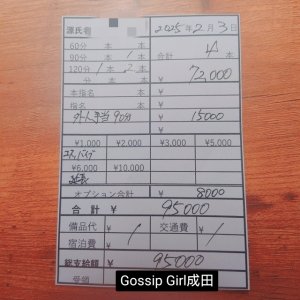 源氏名 2025年2月3日
60分 本 本
90分 本 1本 合計 4本
120分 1本 2本 ¥72,000
分 本 本 ¥
本指名 ¥
指名 ¥
外人手当90分 ¥15000
¥1,000 ¥2,000 ¥3,000 ¥5,000
¥6,000 ¥10,000
オプション合計 ¥8000
合計 ¥95000
備品代 ¥ 交通費 ¥
宿泊費 ¥
総支給額 ¥95000
受領
Gossip Girl成田